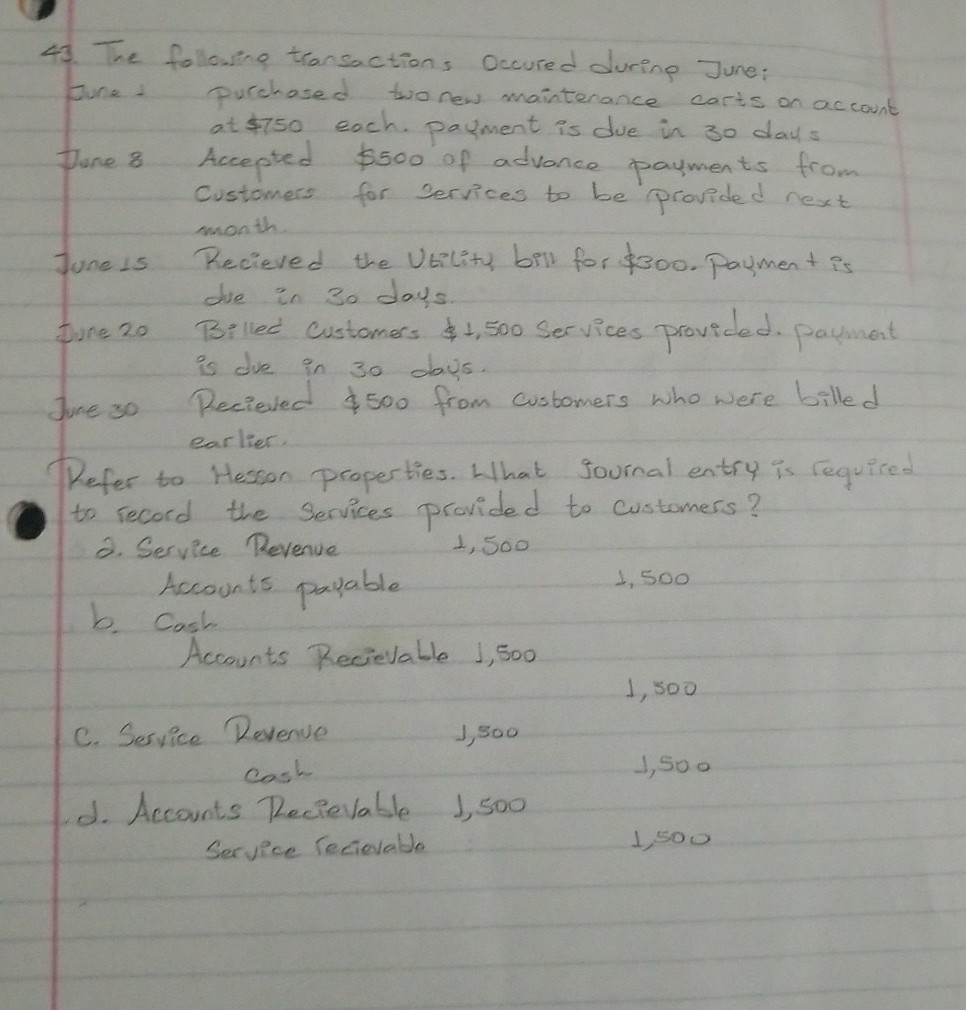 43. The following transactions Occured during June:
June 1 purchased two new maintenance carts on account
at $750 each. payment is due in 30 days
June 8 Accepted $500 of advance payments from
Customers for Services to be provided next
month.
June 15 Recieved the Utility bill for $300. Payment is
due in 30 days.
June 20 Billed Customers $1,500 Services provided. payment
is due in 30 days.
June 30 Recieved $500 from customers who were billed
earlier.
Refer to Hesson properties. What journal entry is required
to record the Services provided to customers?
a. Service Revenue 1,500
Accounts payable 1,500
b. Cash
Accounts Recievable 1,500
1,500
C. Service Revenue 1,500
Cash 1,500
d. Accounts Recievable 1,500
Service recievable 1,500